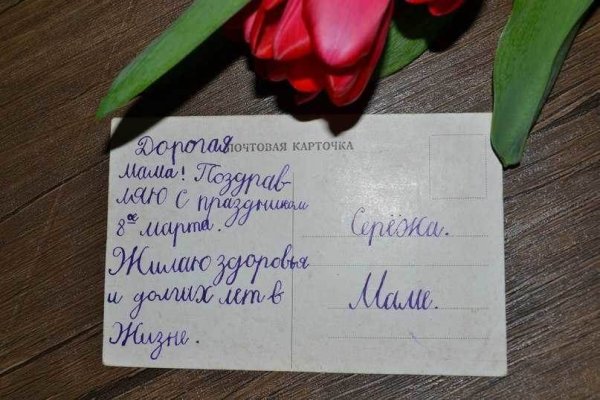 ПОЧТОВАЯ КАРТОЧКА
Дорогая
мама! Поздрав-
ляю с праздником
8ое марта.
Жилаю здоровья
и долгих лет в
Жизне.
Серёжа.
Маме.